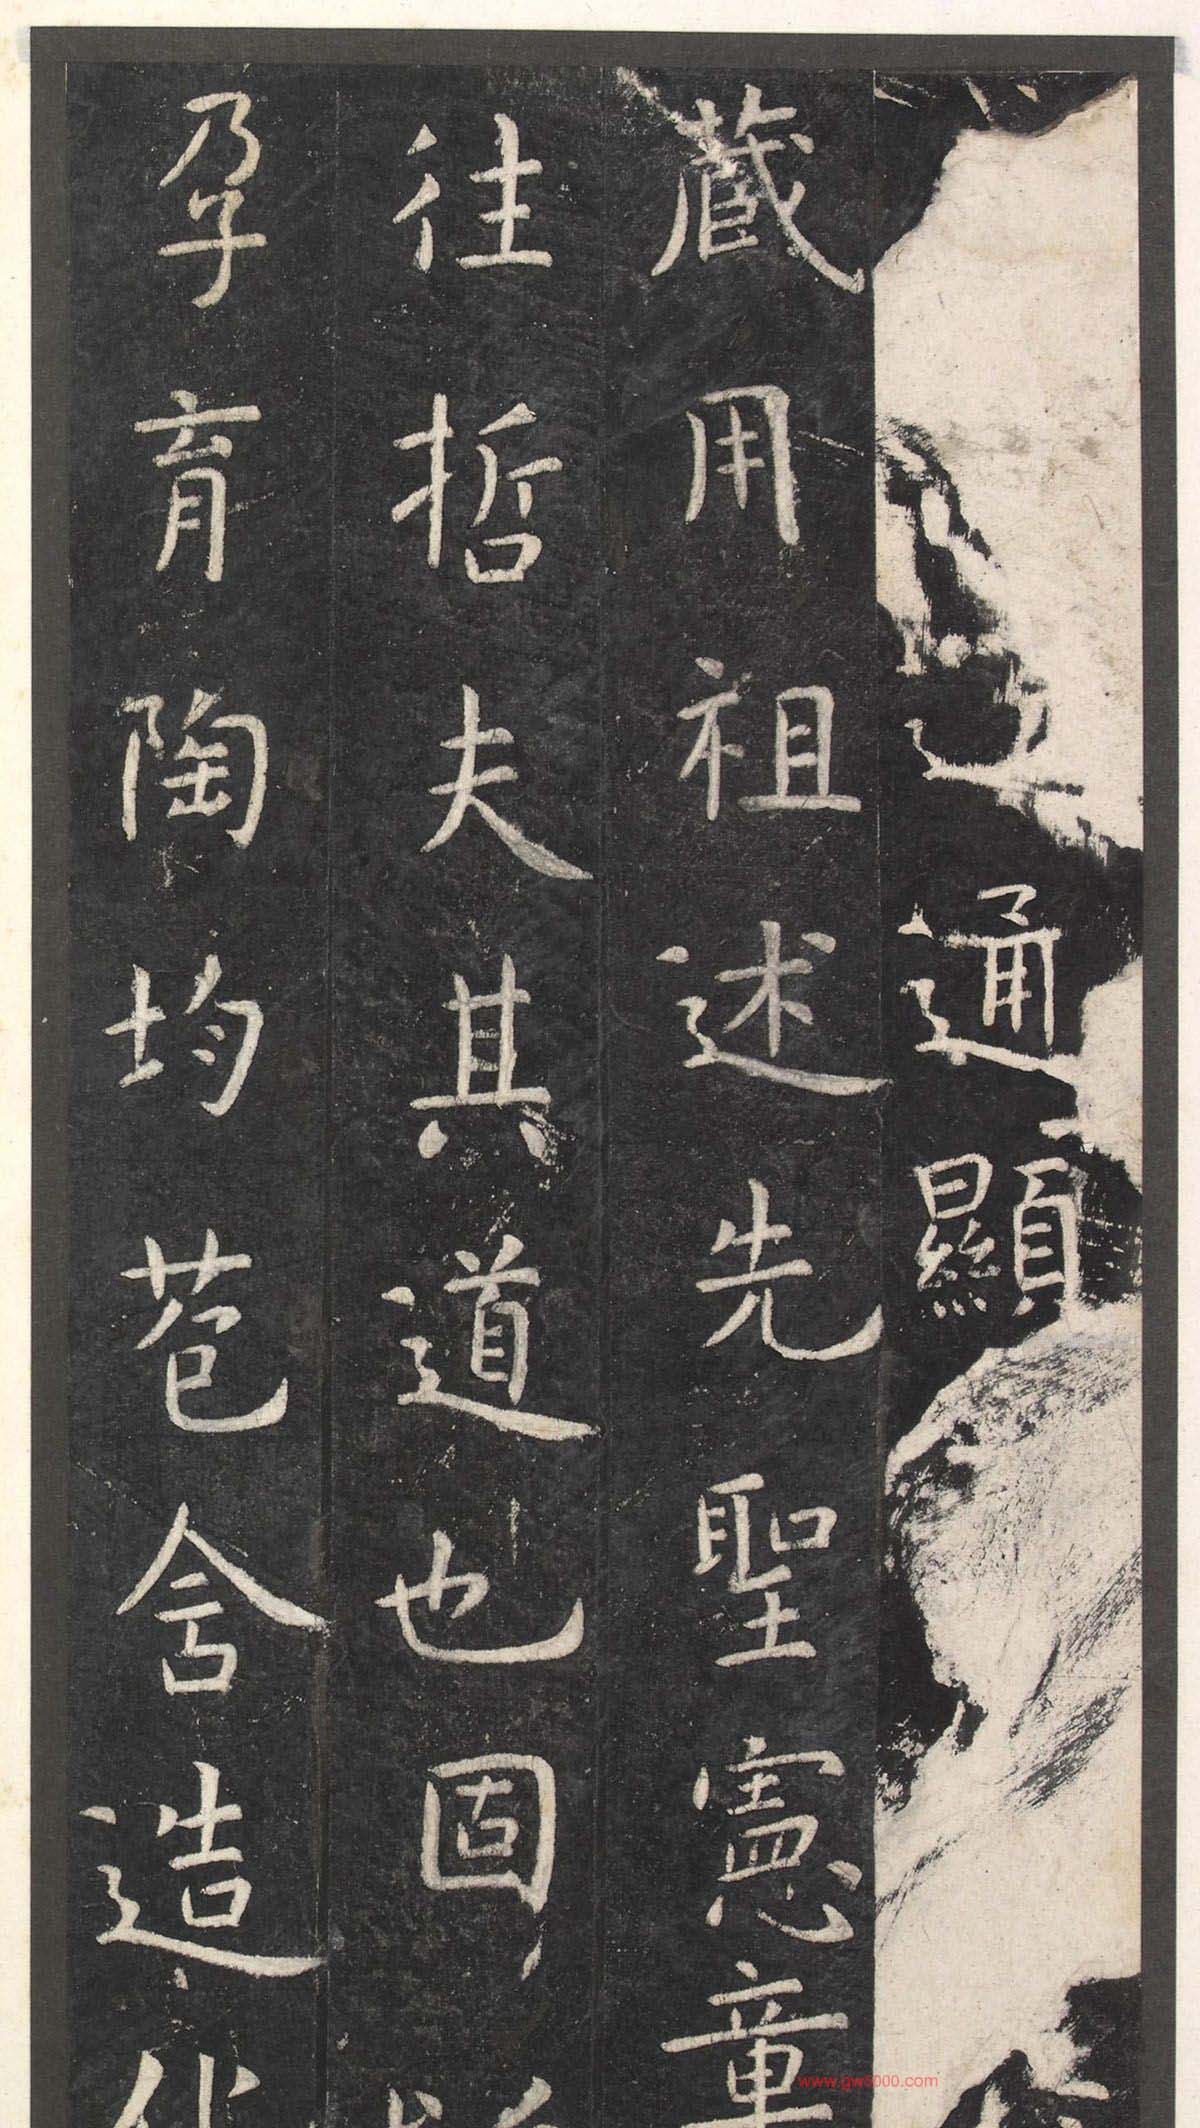 通顯
藏用祖述先聖憲章
往哲夫其道也固以
孕育陶均苞含造化
www.gw5000.com